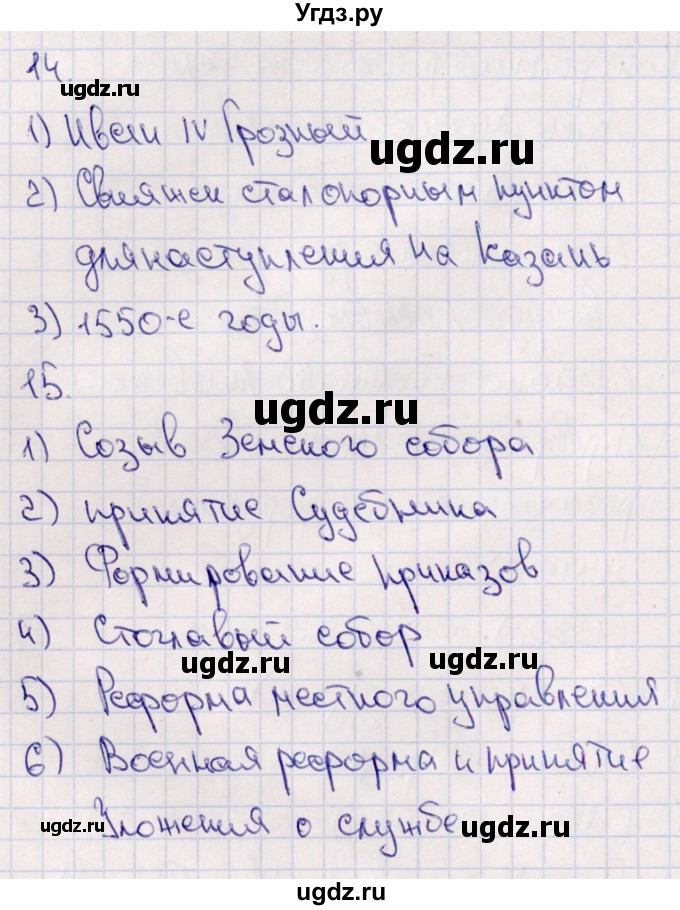 Угдз.ру
14.
ugdz.ru
1) Иван IV Грозный
ugdz.ru
2) Свияжск стал опорным пунктом
для наступления на Казань
3) 1550-е годы.
15.
ugdz.ru
1) Созыв Земского собора
2) принятие Судебника
3) Формирование приказов
4) Стоглавый собор
ugdz.ru
ugdz.ru
5) Реформа местного управления
6) Военная реформа и принятие
Уложения о службе
ugdz.ru
ugdz.ru
ugdz.ru